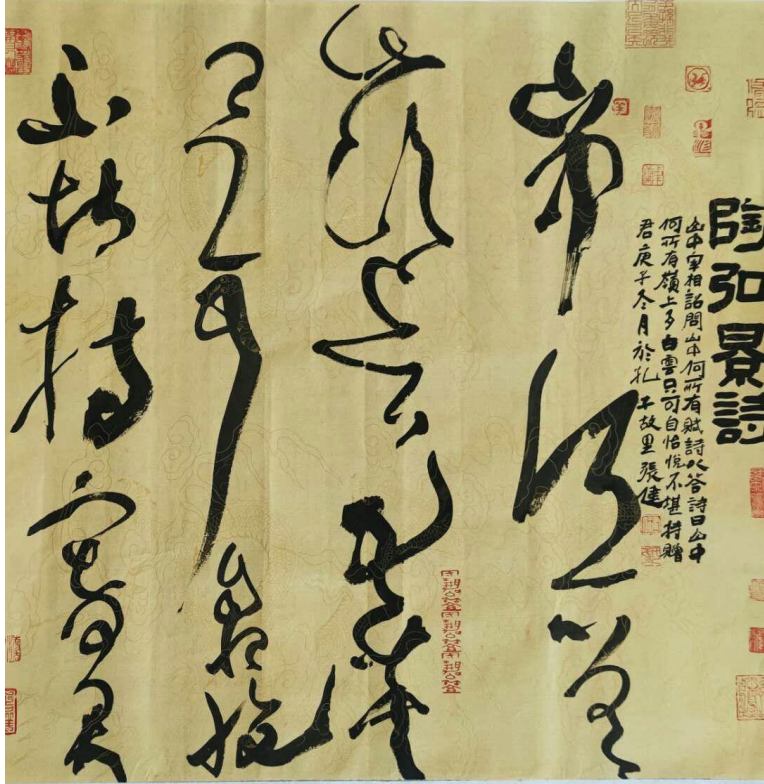 陶弘景詩
山中宰相詔問山中何所有賦詩以答詩曰山中
何所有嶺上多白雲只可自怡悅不堪持贈
君庚子冬月於孔子故里張健
山中何所有
嶺上多白雲
只可自怡悅
不堪持寄君